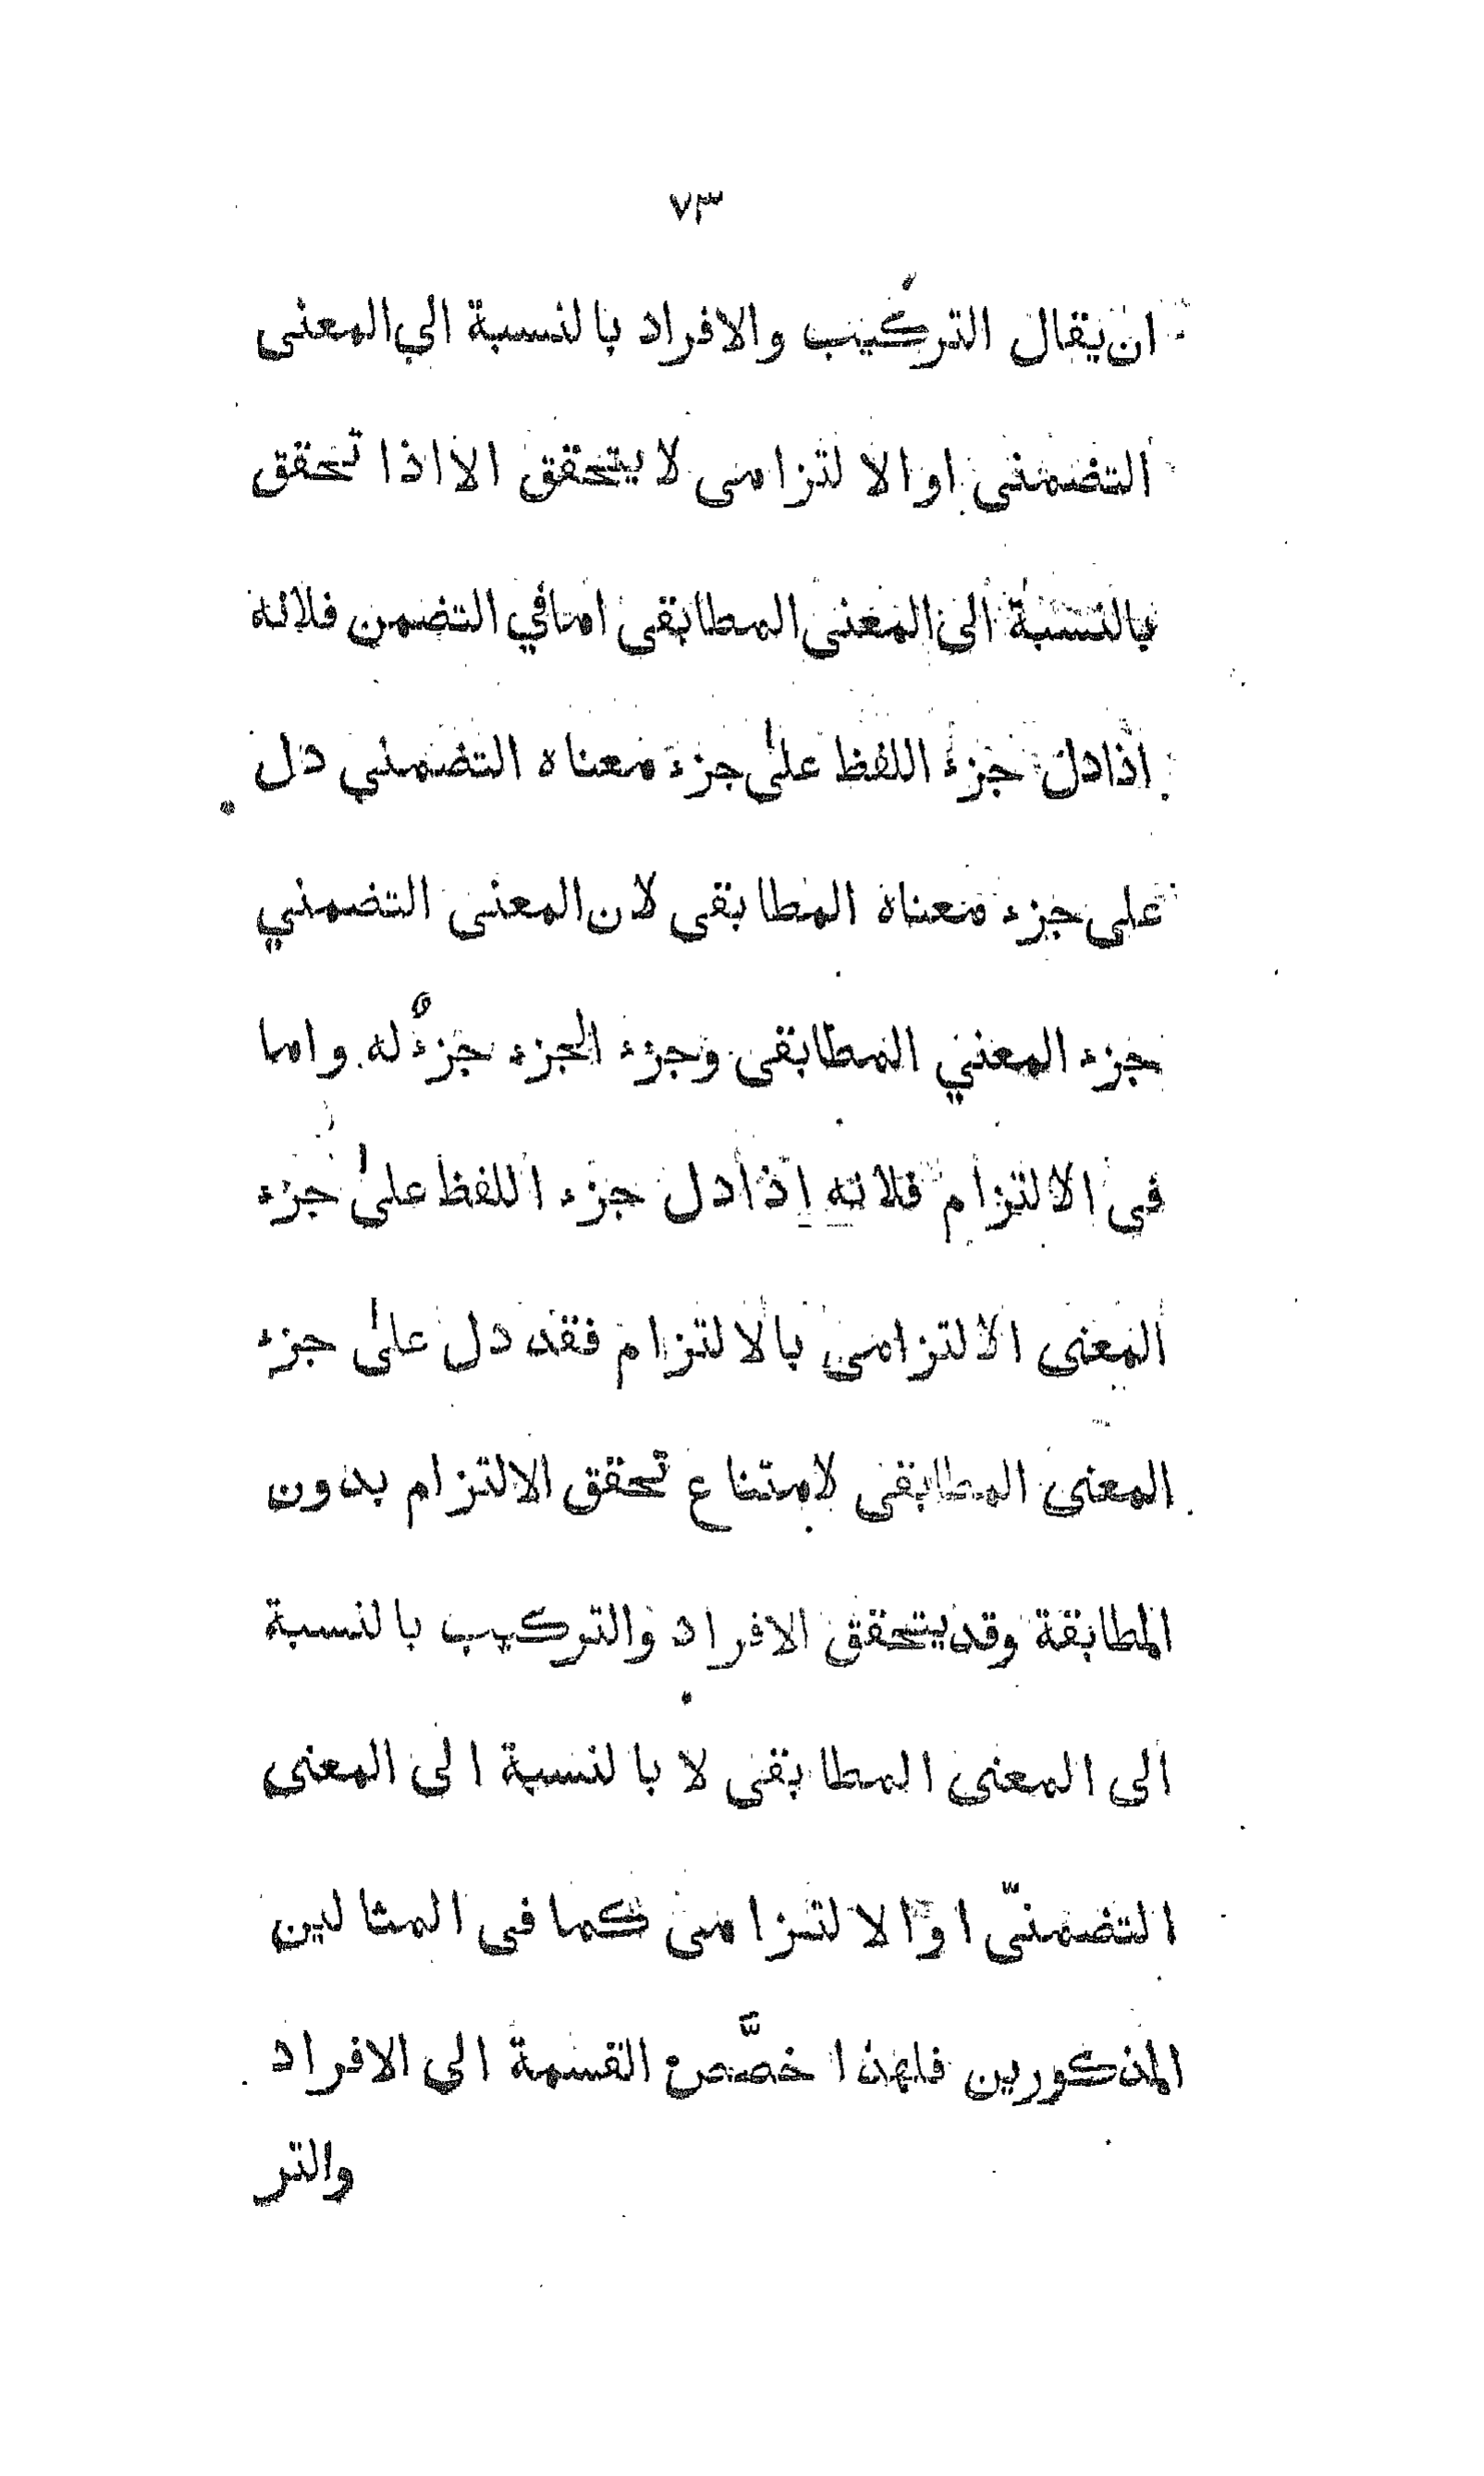 ٧٣
ان يقال التركيب والافراد بالنسبة الي المعنى
التضمنى او الالتزامى لا يتحقق الا اذا تحقق
بالنسبة الى المعنى المطابقى اما في التضمن فلانه
اذا دل جزء اللفظ على جزء معناه التضمني دل
على جزء معناه المطابقى لان المعنى التضمني
جزء المعني المطابقى وجزء الجزء جزءٌ له واما
فى الالتزام فلانه اذا دل جزء اللفظ على جزء
المعنى الالتزامى بالالتزام فقد دل على جزء
المعنى المطابقى لامتناع تحقق الالتزام بدون
المطابقة وقد يتحقق الافراد والتركيب بالنسبة
الى المعنى المطابقى لا بالنسبة الى المعنى
التضمنىّ او الالتزامى كما فى المثالين
المذكورين فلهذا خصَّص القسمة الى الافراد
والتر